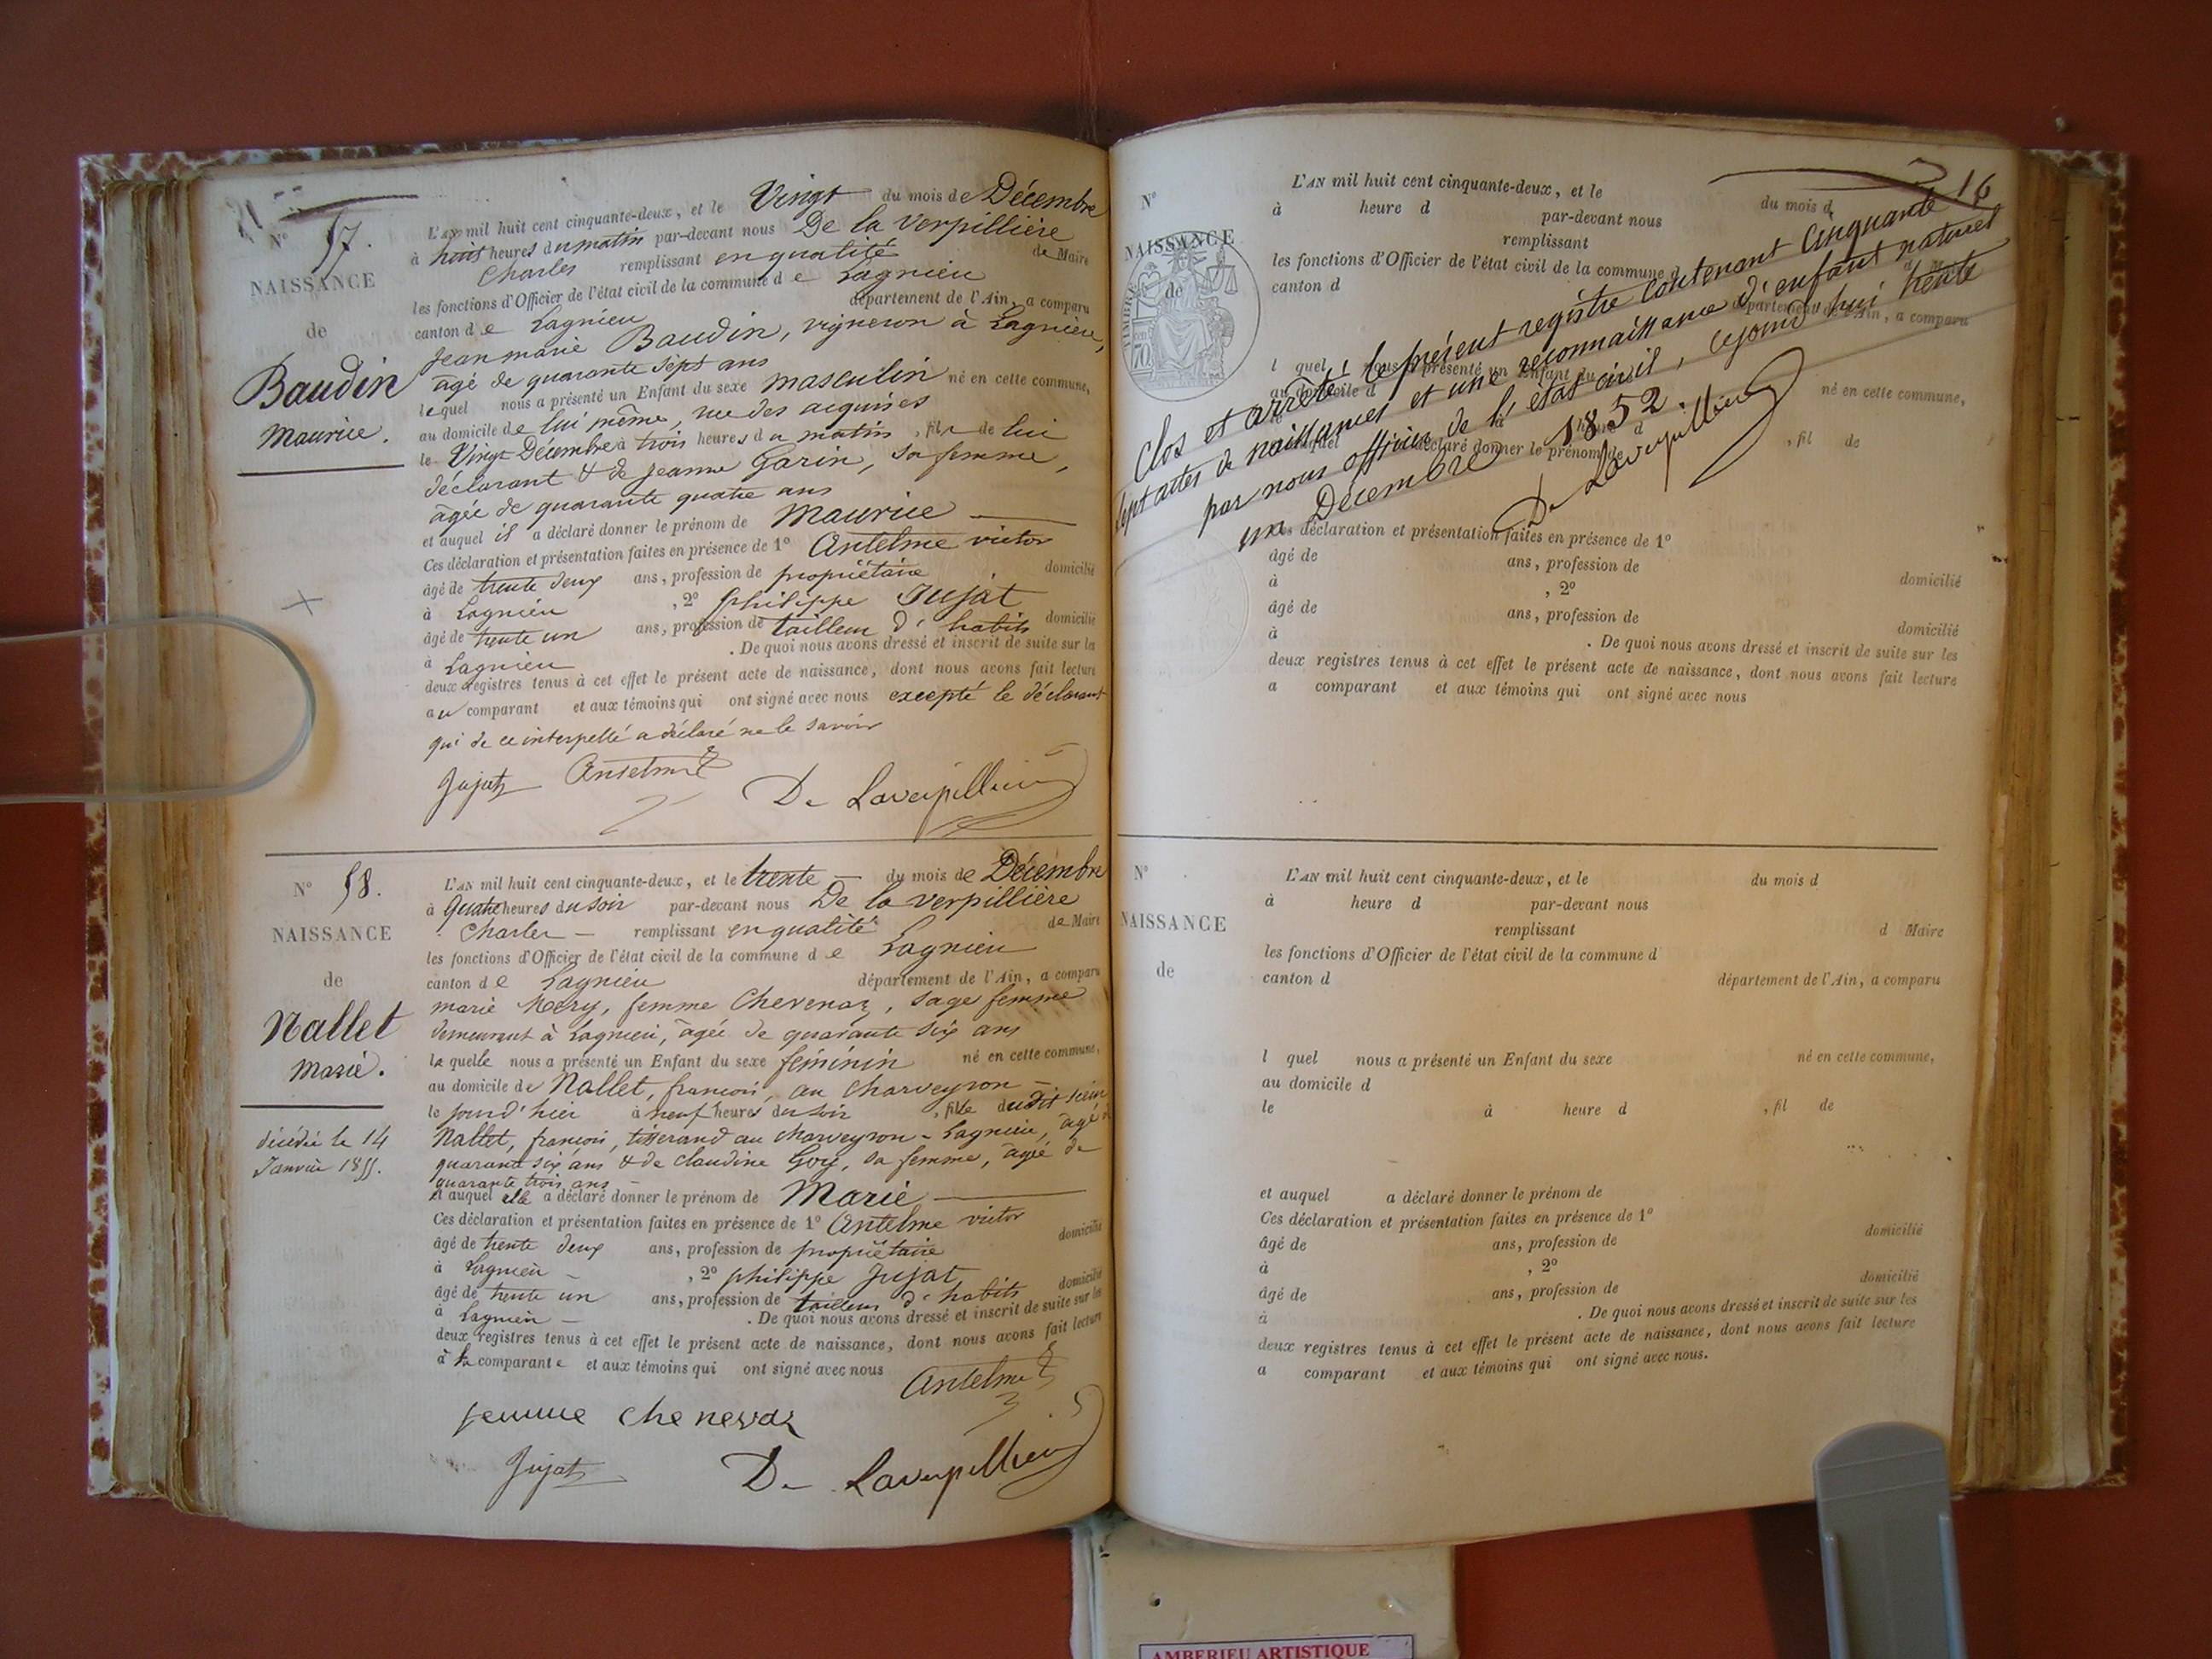 N° 57.
NAISSANCE
de
Baudin
Maurice.
L'AN mil huit cent cinquante-deux, et le Vingt du mois de Décembre
à huit heures du matin par-devant nous De la Verpillière
Charles remplissant en qualité de Maire
les fonctions d'Officier de l'état civil de la commune de Lagnieu
canton de Lagnieu département de l'Ain, a comparu
Jean marie Baudin, vigneron à Lagnieu,
âgé de quarante sept ans
lequel nous a présenté un Enfant du sexe masculin né en cette commune,
au domicile de lui même, rue des acquises
le Vingt Décembre à trois heures du matin, fils de lui
déclarant & de Jeanne Garin, sa femme,
âgée de quarante quatre ans
et auquel il a déclaré donner le prénom de Maurice
Ces déclaration et présentation faites en présence de 1° Antelme victor
âgé de trente deux ans, profession de propriétaire domicilié
à Lagnieu, 2° philippe Jujat
âgé de trente un ans, profession de tailleur d'habits domicilié
à Lagnieu. De quoi nous avons dressé et inscrit de suite sur la
deux registres tenus à cet effet le présent acte de naissance, dont nous avons fait lecture
au comparant et aux témoins qui ont signé avec nous excepté le déclarant
qui de ce interpellé a déclaré ne le savoir
Jujat Antelme De Laverpillière
N° 58.
NAISSANCE
de
Nallet
Marie.
décédée le 14
Janvier 1855.
L'AN mil huit cent cinquante-deux, et le trente du mois de Décembre
à quatre heures du soir par-devant nous De la Verpillière
Charles remplissant en qualité de Maire
les fonctions d'Officier de l'état civil de la commune de Lagnieu
canton de Lagnieu département de l'Ain, a comparu
marie Mery, femme Chevenaz, sage femme
demeurant à Lagnieu, âgée de quarante six ans
laquelle nous a présenté un Enfant du sexe féminin né en cette commune,
au domicile de Nallet, françois, au Charveyron
le jour d'hier à neuf heures du soir, fille dudit sieur
Nallet, françois, tisserand au charveyron - Lagnieu, âgé de
quarante six ans & de claudine Goy, sa femme, âgée de
quarante trois ans
et auquel elle a déclaré donner le prénom de Marie
Ces déclaration et présentation faites en présence de 1° Antelme victor
âgé de trente deux ans, profession de propriétaire domicilié
à Lagnieu, 2° philippe Jujat
âgé de trente un ans, profession de tailleur d'habits domicilié
à Lagnieu. De quoi nous avons dressé et inscrit de suite sur les
deux registres tenus à cet effet le présent acte de naissance, dont nous avons fait lecture
à la comparante et aux témoins qui ont signé avec nous Antelme
femme chenevaz
Jujat De Laverpillière
16
N°
NAISSANCE
de
L'AN mil huit cent cinquante-deux, et le du mois d
à heure d par-devant nous
remplissant
les fonctions d'Officier de l'état civil de la commune d
canton d département de l'Ain, a comparu
l quel nous a présenté un Enfant du né en cette commune,
au domicile d
, fil de
déclaré donner le prénom de
Clos et arrêté le présent registre contenant Cinquante
sept actes de naissances et une reconnaissance d'enfant naturel
par nous officier de l'état civil, cejourd'hui trente
un Décembre 1852.
De Laverpillière
Ces déclaration et présentation faites en présence de 1°
âgé de ans, profession de
à , 2° domicilié
âgé de ans, profession de
à . De quoi nous avons dressé et inscrit de suite sur les domicilié
deux registres tenus à cet effet le présent acte de naissance, dont nous avons fait lecture
a comparant et aux témoins qui ont signé avec nous
N°
NAISSANCE
de
L'AN mil huit cent cinquante-deux, et le du mois d
à heure d par-devant nous
remplissant d Maire
les fonctions d'Officier de l'état civil de la commune d
canton d département de l'Ain, a comparu
l quel nous a présenté un Enfant du sexe né en cette commune,
au domicile d
le à heure d , fil de
et auquel a déclaré donner le prénom de
Ces déclaration et présentation faites en présence de 1°
âgé de ans, profession de domicilié
à , 2°
âgé de ans, profession de domicilié
à . De quoi nous avons dressé et inscrit de suite sur les
deux registres tenus à cet effet le présent acte de naissance, dont nous avons fait lecture
a comparant et aux témoins qui ont signé avec nous.
AMBERIEU ARTISTIQUE